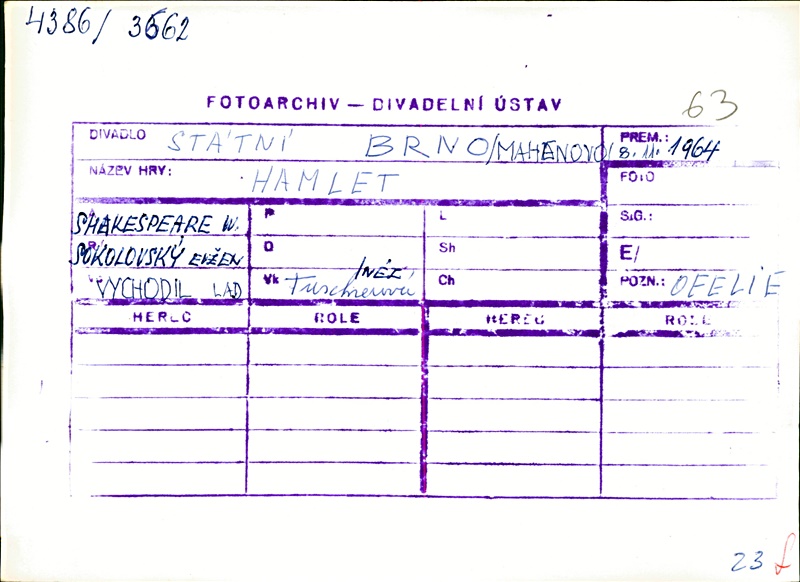 4386/ 3662
FOTOARCHIV — DIVADELNÍ ÚSTAV
63
DIVADLO STÁTNÍ BRNO/MAHENOVO/
PREM.: 8. 11. 1964
NÁZEV HRY: HAMLET
FOTO
SHAKESPEARE W.
P
L
SIG.:
SOKOLOVSKÝ EVŽEN
D
Sh
E/
VYCHODIL LAD
Vk INÉZ
Ch
POZN.: OFELIE
HEREC ROLE HEREC ROLE
23